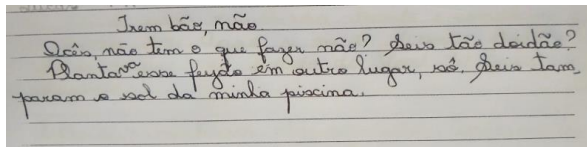 Trem bão, não.
Ocês, não tem o que fazer não? Seis tão doidão?
Plantava esse feijão em outro lugar, sô. Seis tam
param o sol da minha piscina.